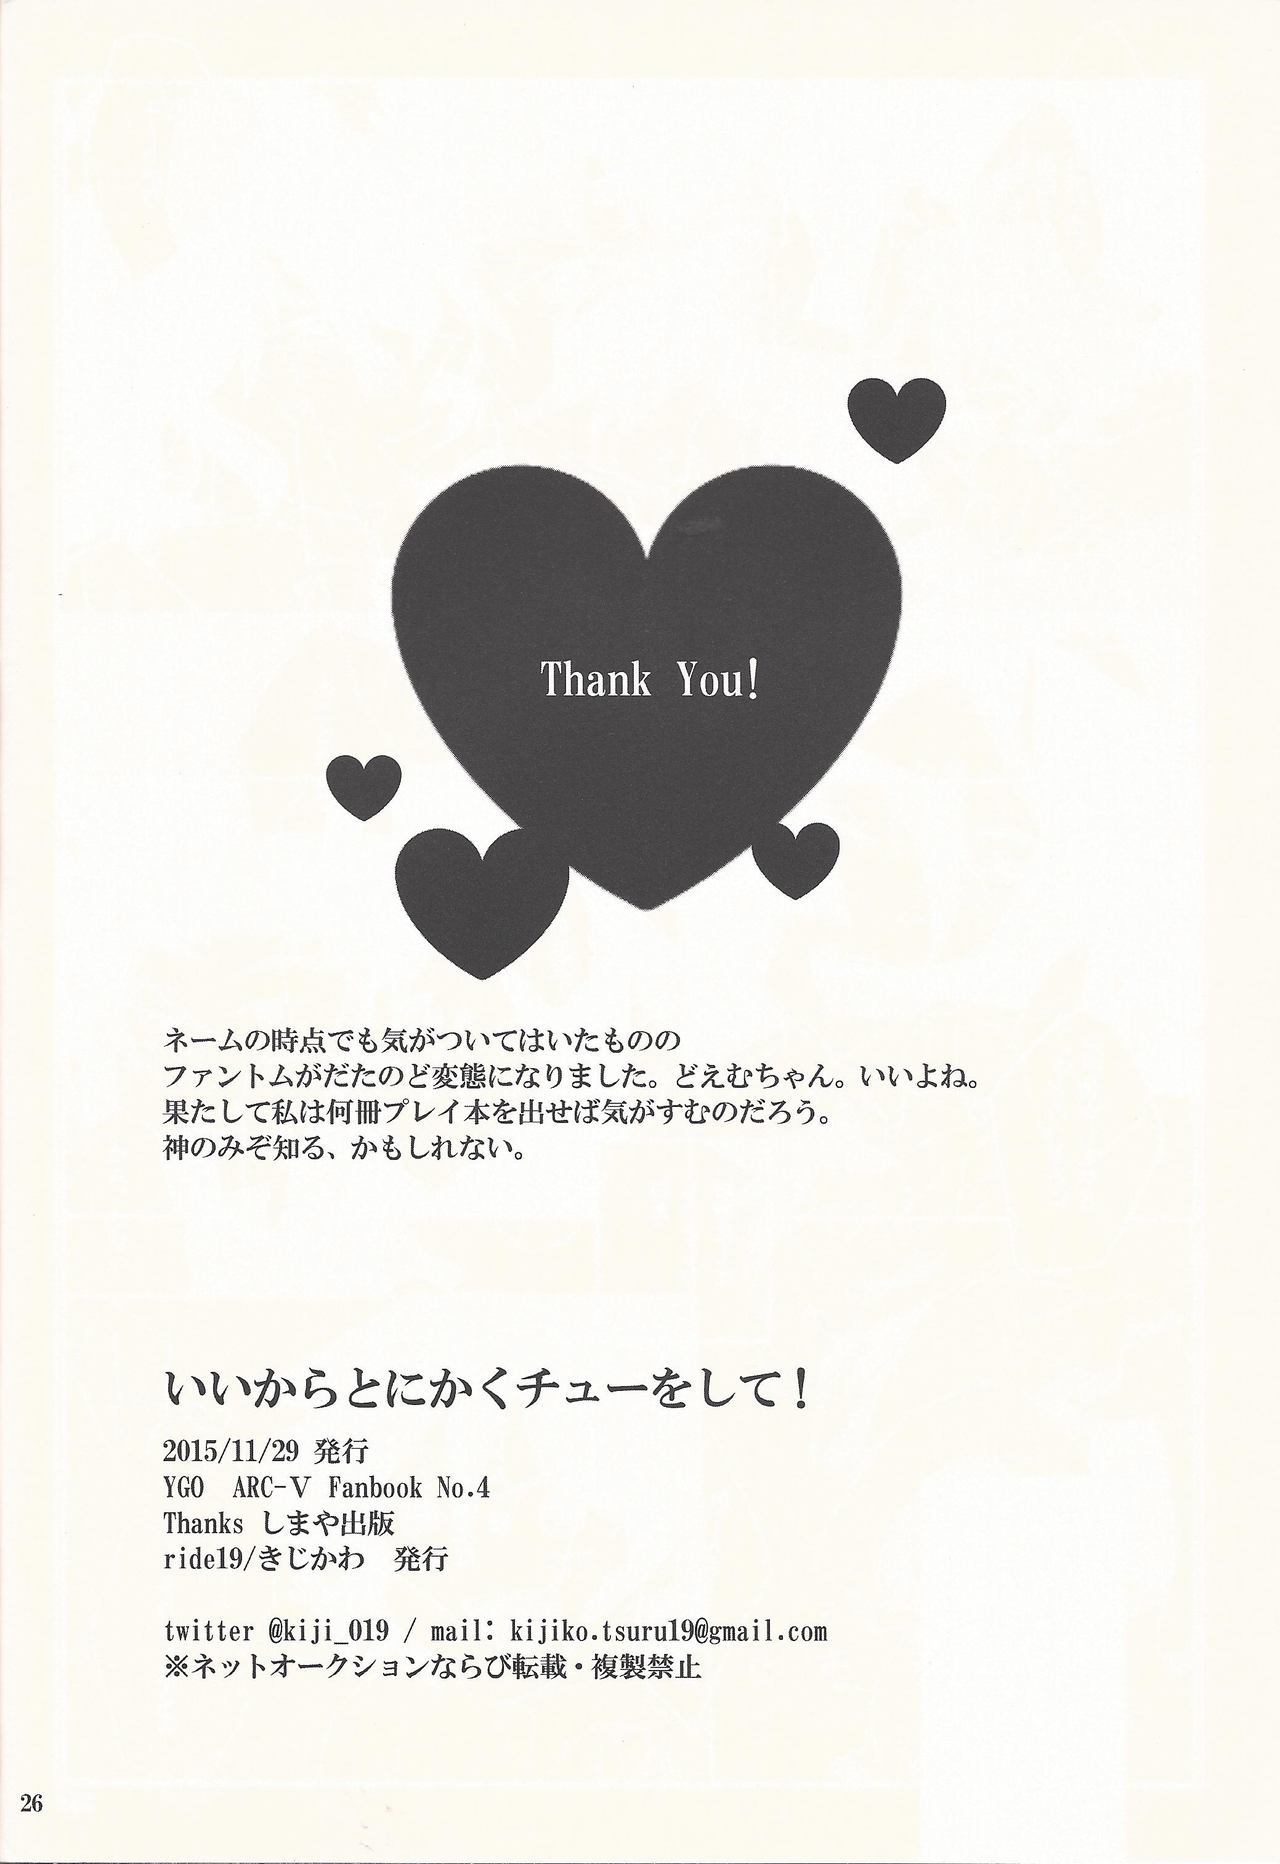 Thank You!
ネームの時点でも気がついてはいたものの
ファントムがだたのど変態になりました。どえむちゃん。いいよね。
果たして私は何冊プレイ本を出せば気がすむのだろう。
神のみぞ知る、かもしれない。
いいからとにかくチューをして！
2015/11/29 発行
YGO　ARC-Ⅴ Fanbook No.4
Thanks しまや出版
ride19/きじかわ　発行
twitter @kiji_019 / mail: kijiko.tsuru19@gmail.com
※ネットオークションならび転載・複製禁止
26